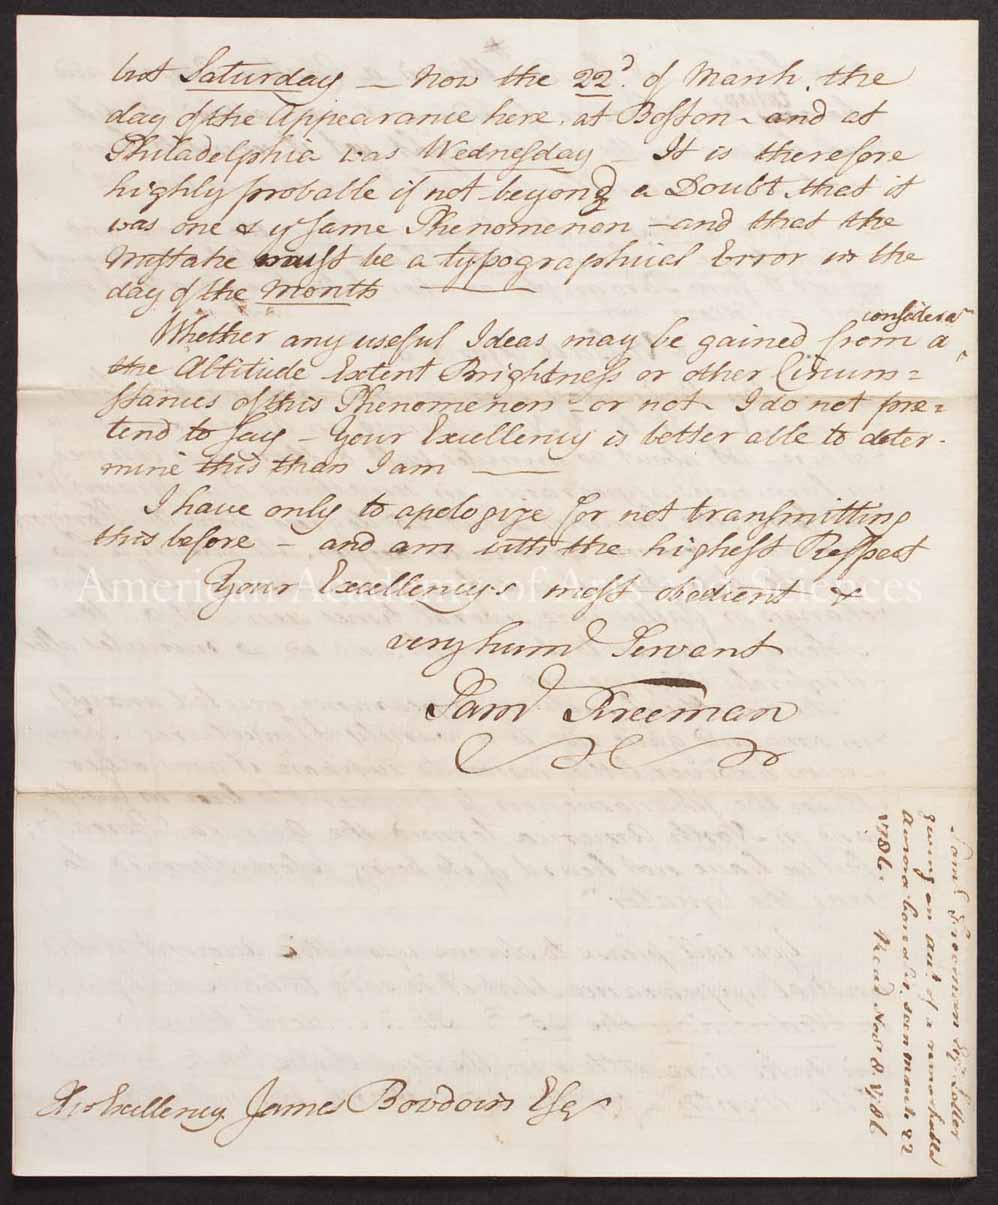 but Saturday — Now the 22d. of March, the
day of the Appearance here, at Boston - and at
Philadelphia was Wednesday — It is therefore
highly probable if not beyond a Doubt that it
was one & ye same Phenomenon — and that the
Mistake must be a typographical Error in the
day of the Month —
considera
Whether any useful Ideas may be gained from a
the Altitude Extent Brightness or other Circum=
stances of this Phenomenon — or not - I do not pre=
tend to say — Your Excellency is better able to deter-
mine this than I am —
I have only to apologize for not transmitting
this before — and am with the highest Respect
Your Excellency's most obedient &
very hum Servant
Saml Freeman
His Excellency James Bowdoin Esqr
Saml. Freeman Esqr. Letter
giving an acct. of a remarkable
Aurora borealis, seen March 22
1786. Read Novr 8 1786.
American Academy of Arts and Sciences